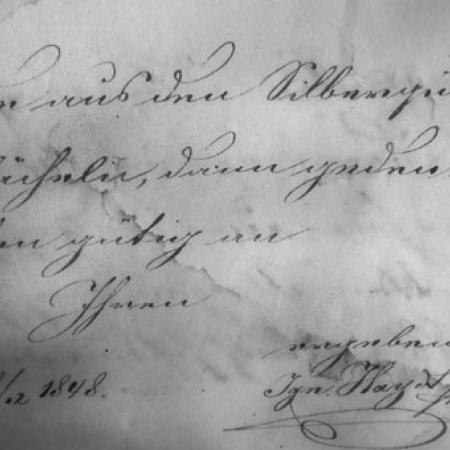 aus den Silbergü
ächeln, dann geden
en gütig an
Ihren
ergeben
/12 1848. Ign. Hayd